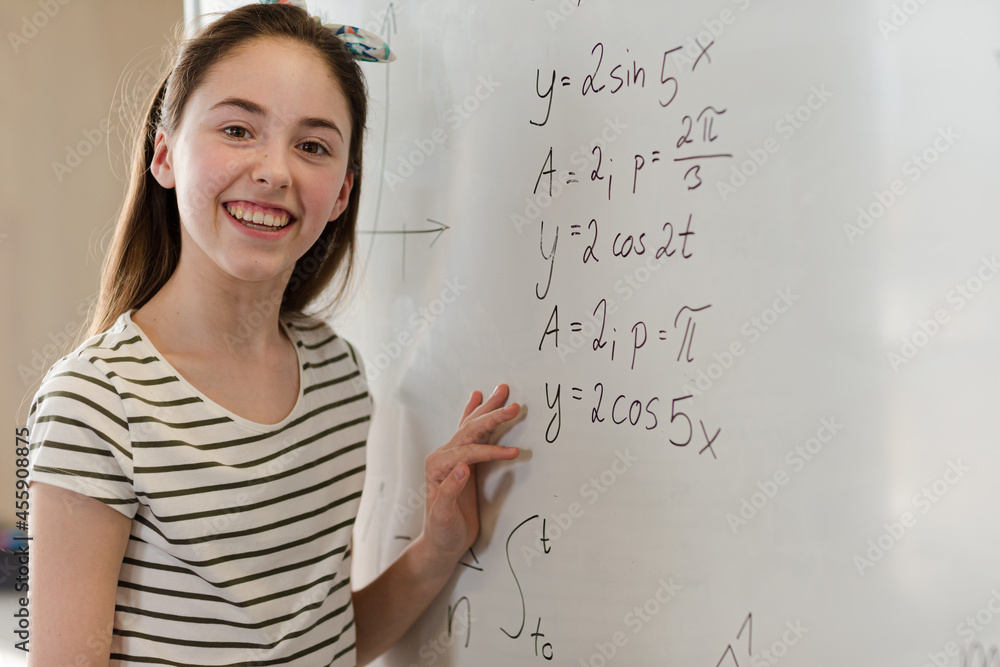 y = 2 sin 5x
A = 2; p = 2π/3
y = 2 cos 2t
A = 2; p = π
y = 2 cos 5x
n ∫ t t₀
Adobe Stock | #455908875